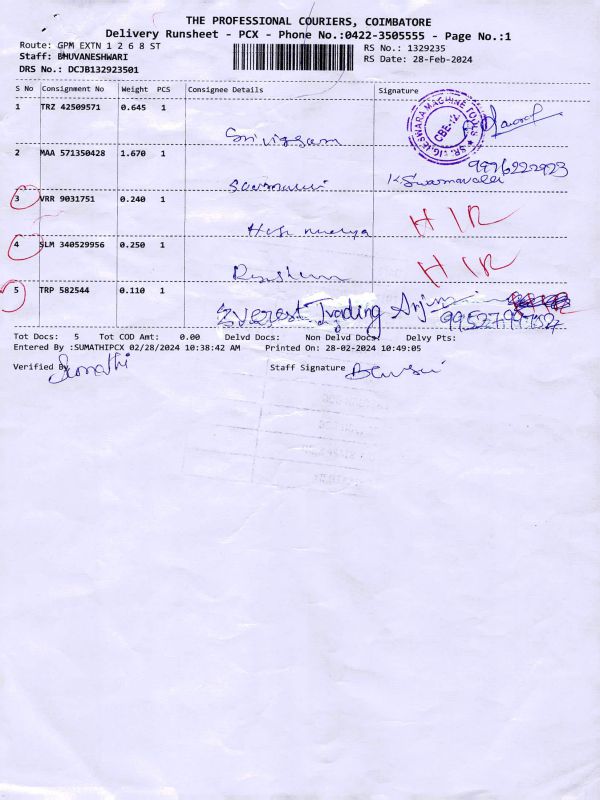 THE PROFESSIONAL COURIERS, COIMBATORE
Delivery Runsheet - PCX - Phone No.:0422-3505555 - Page No.:1
Route: GPM EXTN 1 2 6 8 ST RS No.: 1329235
Staff: BHUVANESHWARI RS Date: 28-Feb-2024
DRS No.: DCJB132923501
S No Consignment No Weight PCS Consignee Details Signature
1 TRZ 42509571 0.645 1
2 MAA 571350428 1.670 1
3 VRR 9031751 0.240 1
4 SLM 340529956 0.250 1
5 TRP 582544 0.110 1 Everest Trading
Tot Docs: 5 Tot COD Amt: 0.00 Delvd Docs: Non Delvd Docs: Delvy Pts:
Entered By :SUMATHIPCX 02/28/2024 10:38:42 AM Printed On: 28-02-2024 10:49:05
Verified By Sumathi Staff Signature